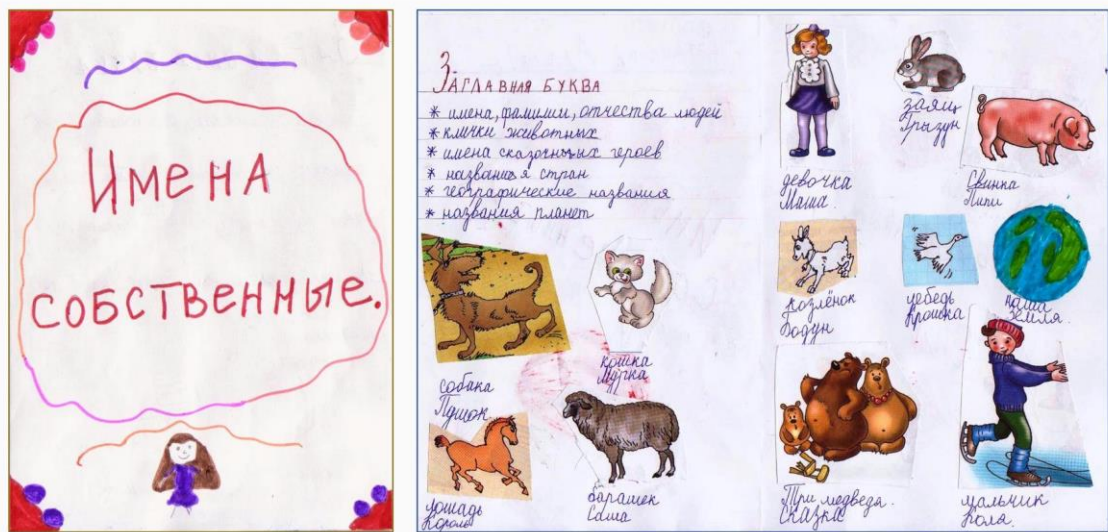 Имена
собственные.
Заглавная буква
* имена, фамилии, отчества людей
* клички животных
* имена сказочных героев
* названия стран
* географические названия
* названия планет
собака
Пушок
кошка
Мурка
лошадь
Король
барашек
Саша
девочка
Маша.
заяц
Грызун
Свинка
Пипи
козлёнок
Бодун
лебедь
Крошка
наша
Земля.
Три медведя.
сказка
мальчик
Коля.